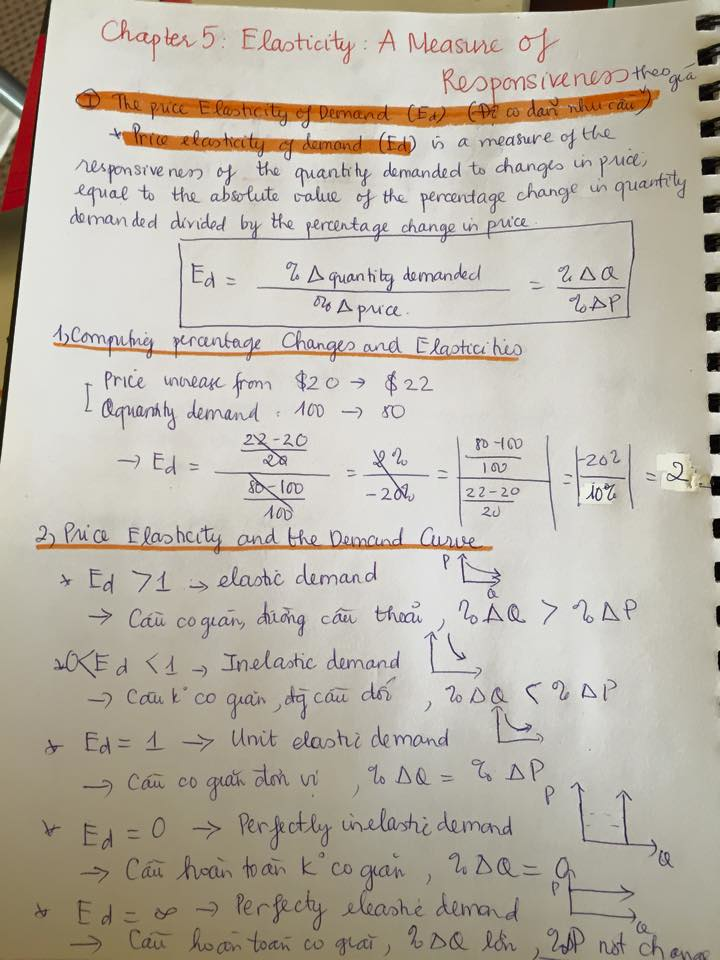 Chapter 5: Elasticity: A Measure of
Responsiveness theo giá
I The price Elasticity of Demand (Ed) (Độ co dãn nhu cầu)
* Price elasticity of demand (Ed) is a measure of the
responsiveness of the quantity demanded to changes in price;
equal to the absolute value of the percentage change in quantity
demanded divided by the percentage change in price.
Ed = % Δ quantity demanded / % Δ price. = % ΔQ / % ΔP
1, Computing percentage Changes and Elasticities
Price increase from $20 → $22
Qquantity demand : 100 → 80
→ Ed = (22-20)/20 / (80-100)/100 = % / -20% = |(80-100)/100 / (22-20)/20| = |-20% / 10%| = 2
2, Price Elasticity and the Demand Curve
* Ed > 1 → elastic demand P Q
→ Cầu co giãn, đường cầu thoải, % ΔQ > % ΔP
* 0 < Ed < 1 → Inelastic demand
→ Cầu k° co giãn, đg cầu dốc, % ΔQ < % ΔP
* Ed = 1 → Unit elastic demand
→ Cầu co giãn đơn vị, % ΔQ = % ΔP
* Ed = 0 → Perfectly inelastic demand P Q
→ Cầu hoàn toàn k° co giãn, % ΔQ = 0
* Ed = ∞ → Perfecty eleastic demand P Q
→ Cầu hoàn toàn co giãn, % ΔQ lớn, % ΔP not change